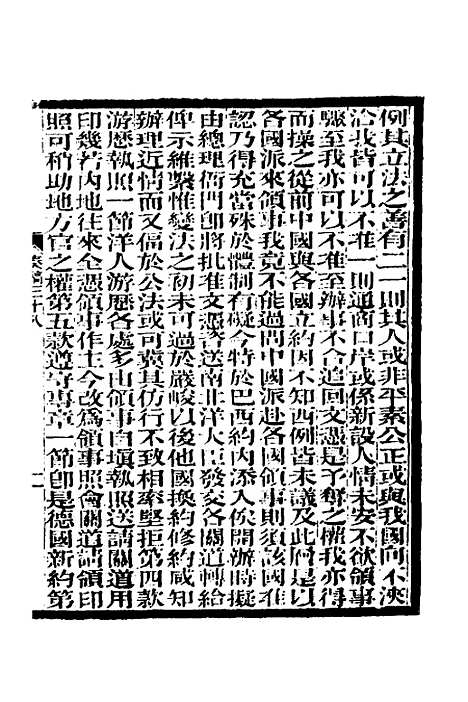 例其立法之善有二一則其人或非平素公正或與我國向不浹
洽我皆可以不准一則通商口岸或係新設人情未安不欲領事
驟至我亦可以不准至辦事不合追回文憑是予奪之權我亦得
而操之從前中國與各國立約因不知西例皆未議及此何是以
各國派來領事我竟不能過問中國派赴各國領事則須該國准
認乃得充當殊於體制有礙今特於巴西約內添入俟開辦時擬
由總理衙門卽將批准文憑咨送南北洋大臣發交各關道轉給
俾示維繫惟變法之初未可過於嚴峻以後他國換約修約咸知
辦理近情而又偪於公法或可冀其仿行不致相率堅拒第四款
游歷執照一節洋人游歷各處多由領事自塡執照送請關道用
印幾若內地往來全憑領事作主今改爲領事照會關道請領印
照可稍助地方官之權第五款遵奇專章一節卽是德國新約第